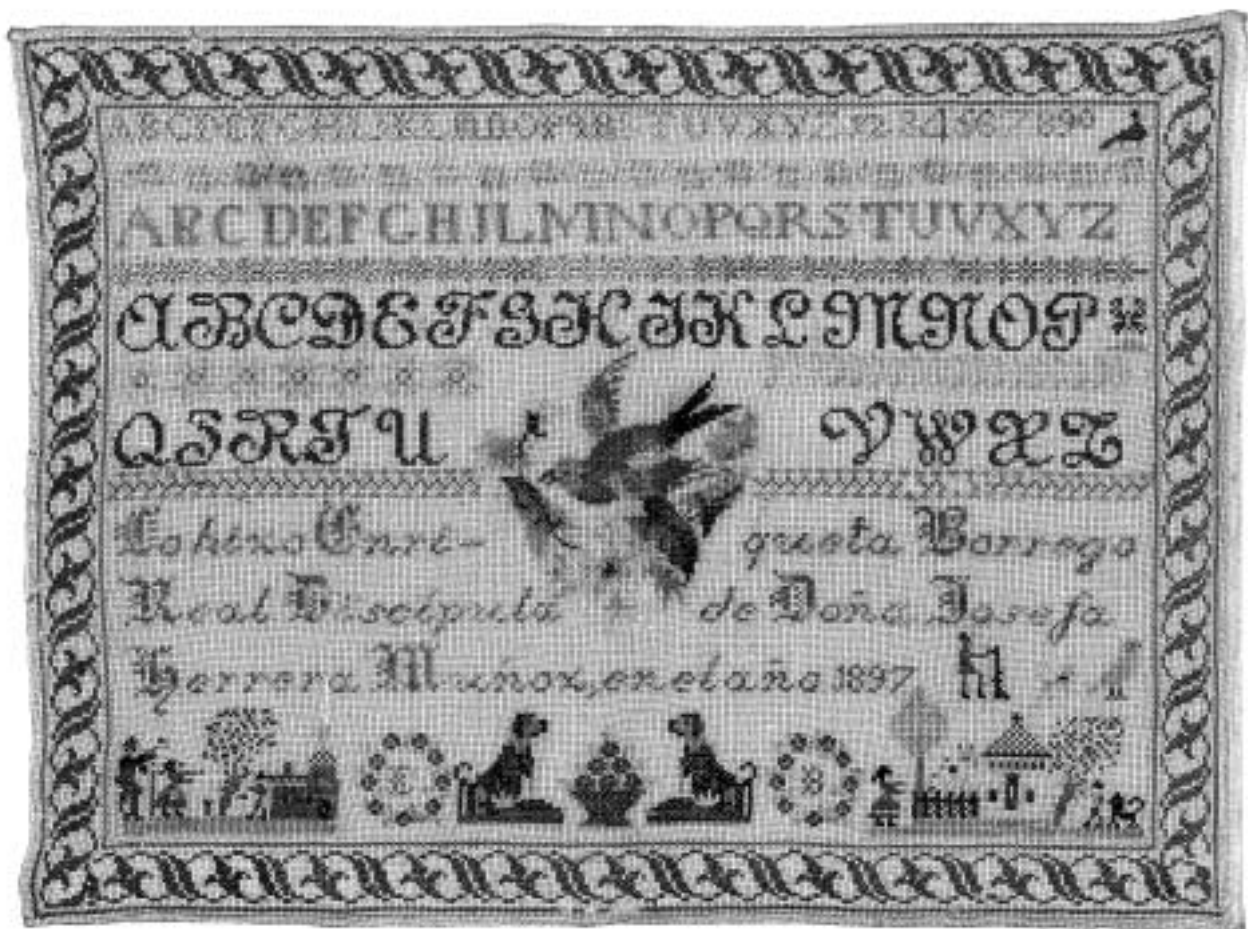 ABCDEFGHIJKLMNOPQRSTUVXYZ1234567890
ABCDEFGHIJLMNOPQRSTUVXYZ
ABCDEFGHIJKLMNOP
QSRTU VWXZ
Lo hizo Enri- queta Borrego
Real Discipula de Doña Josefa
Herrera Muñoz, en el año 1897
E B